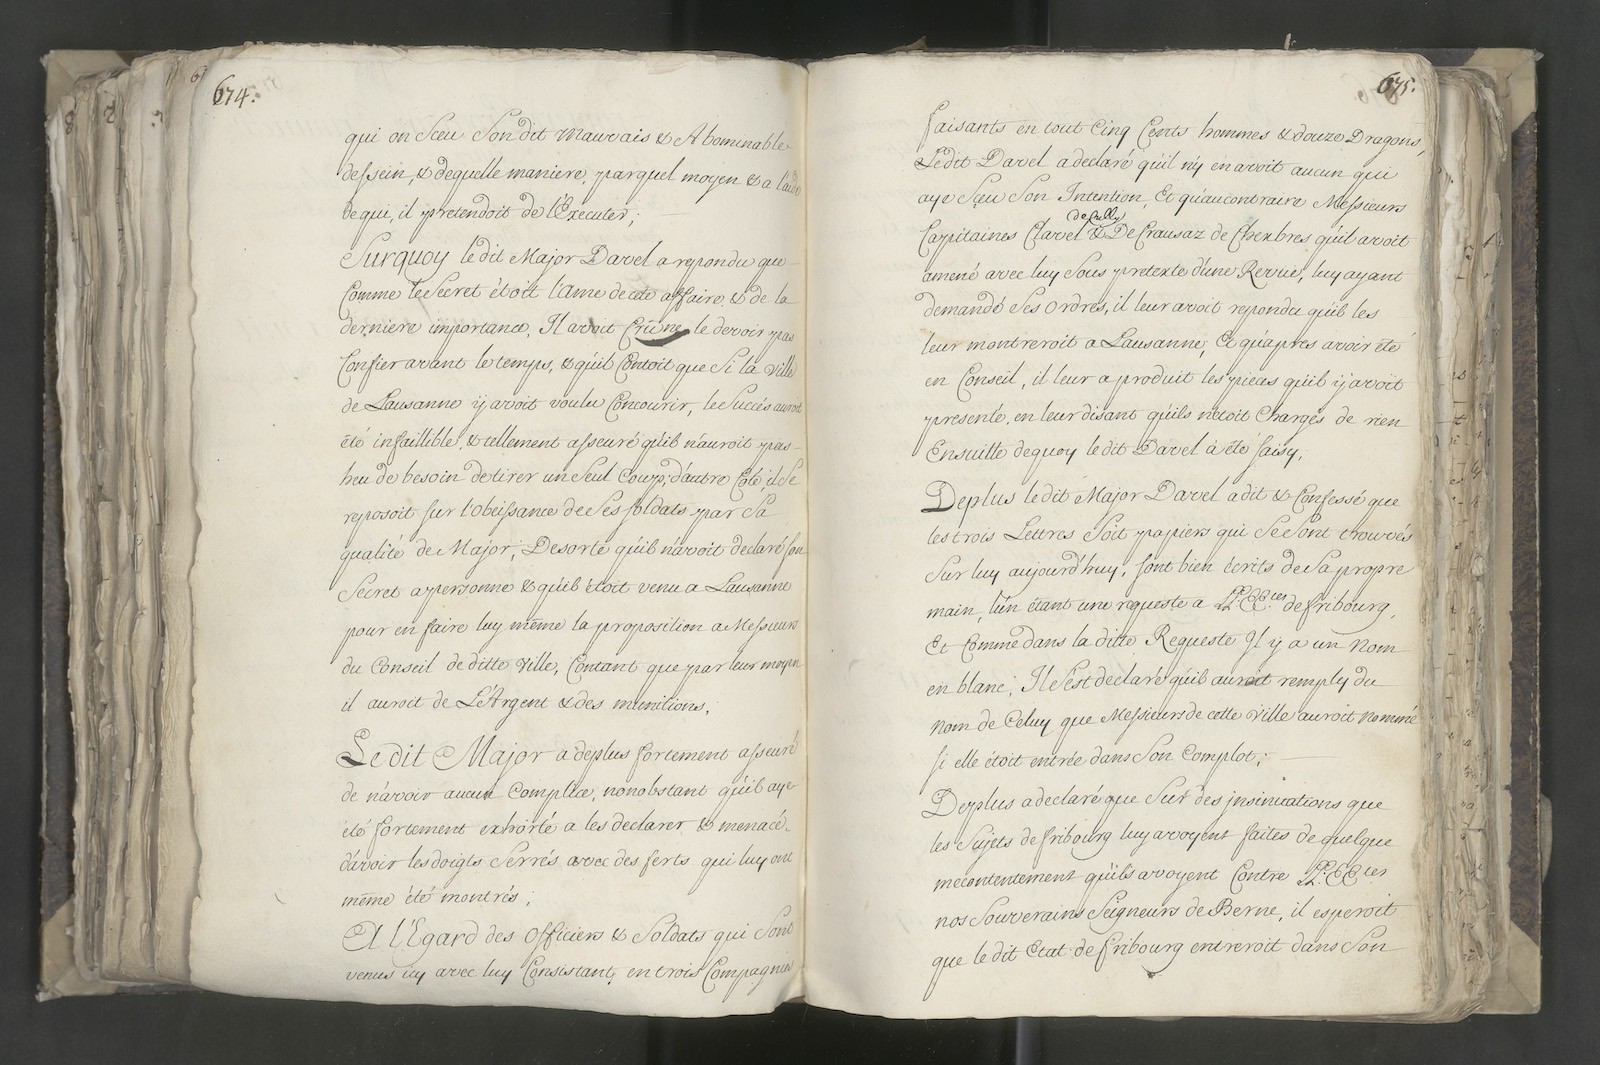 674.
qui on Sceu Son dit Mauvais & Abominable
dessein, & dequelle maniere, parquel moyen & a l'aide
de qui, il pretendoit de l'Executer;
Surquoy ledit Major Davel a repondu que
Comme le Secret étoit l'ame de cete affaire, & de la
derniere importance, Il avoit Crû ne le devoir pas
Confier avant le temps, & qu'il Contoit que Si la Ville
de Lausanne ij avoit voulu Concourir, le Succés auroit
été infaillible, & tellement asseuré qu'il n'auroit pas
heu de besoin de tirer un Seul Coup; d'autre Côté, il Se
reposoit sur l'obeissance de Ses soldats par Sa
qualité de Major, Desorte qu'il n'avoit declaré son
Secret a personne & qu'il étoit venu a Lausanne
pour en faire luy même la proposition a Messieurs
du Conseil de ditte Ville, Contant que par leur moyen
il auroit de L'Argent & des munitions;
Le dit Major a deplus fortement asseuré
de n'avoir aucun Complice, nonobstant qu'il aye
été fortement exhorté a les declarer & menacé
d'avoir les doigts Serrés avec des ferts qui luy ont
même été montrés;
A l'Egard des Officiers & Soldats qui Sont
venus icy avec luy Consistant, en trois Compagnies
675.
faisants en tout Cinq Cents hommes & douze Dragons,
Ledit Davel a declaré qu'il n'y en avoit aucun qui
aye Sceu Son Intention, Et qu'aucontraire Messieurs
de Cully
Capitaines Clavel & De Crausaz de Chexbres qu'il avoit
amené avec luy Sous pretexte d'une Revuë, luy ayant
demandé Ses Ordres, il leur avoit repondu qu'il les
leur montreroit a Lausanne, Et qu'apres avoir été
en Conseil, il leur a produit les pieces qu'il ij avoit
presenté, en leur disant qu'ils n'étoit Chargés de rien
Ensuitte dequoy ledit Davel à été saisy,
Deplus le dit Major Davel a dit & Confessé que
les trois Lettres Soit papiers qui Se Sont trouvés
Sur luy aujourd'huy, sont bien écrits de Sa propre
main, l'ún étant une requeste a LL.EE.ces de fribourg,
Et Comme dans la ditte Requeste Il y a un Nom
en blanc, Il s'est declaré qu'il auroit remply du
Nom de Celuy que Messieurs de cette Ville auroit Nommé
si elle étoit entrée dans Son Complot;
Deplus a declaré que Sur des jnsinuations que
les Sujets de fribourg luy avoyent faites de quelque
mecontentement qu'ils avoyent Contre LL.EE.ces
nos Souverains Seigneurs de Berne, il esperoit
que le dit Etat de fribourg entreroit dans Son